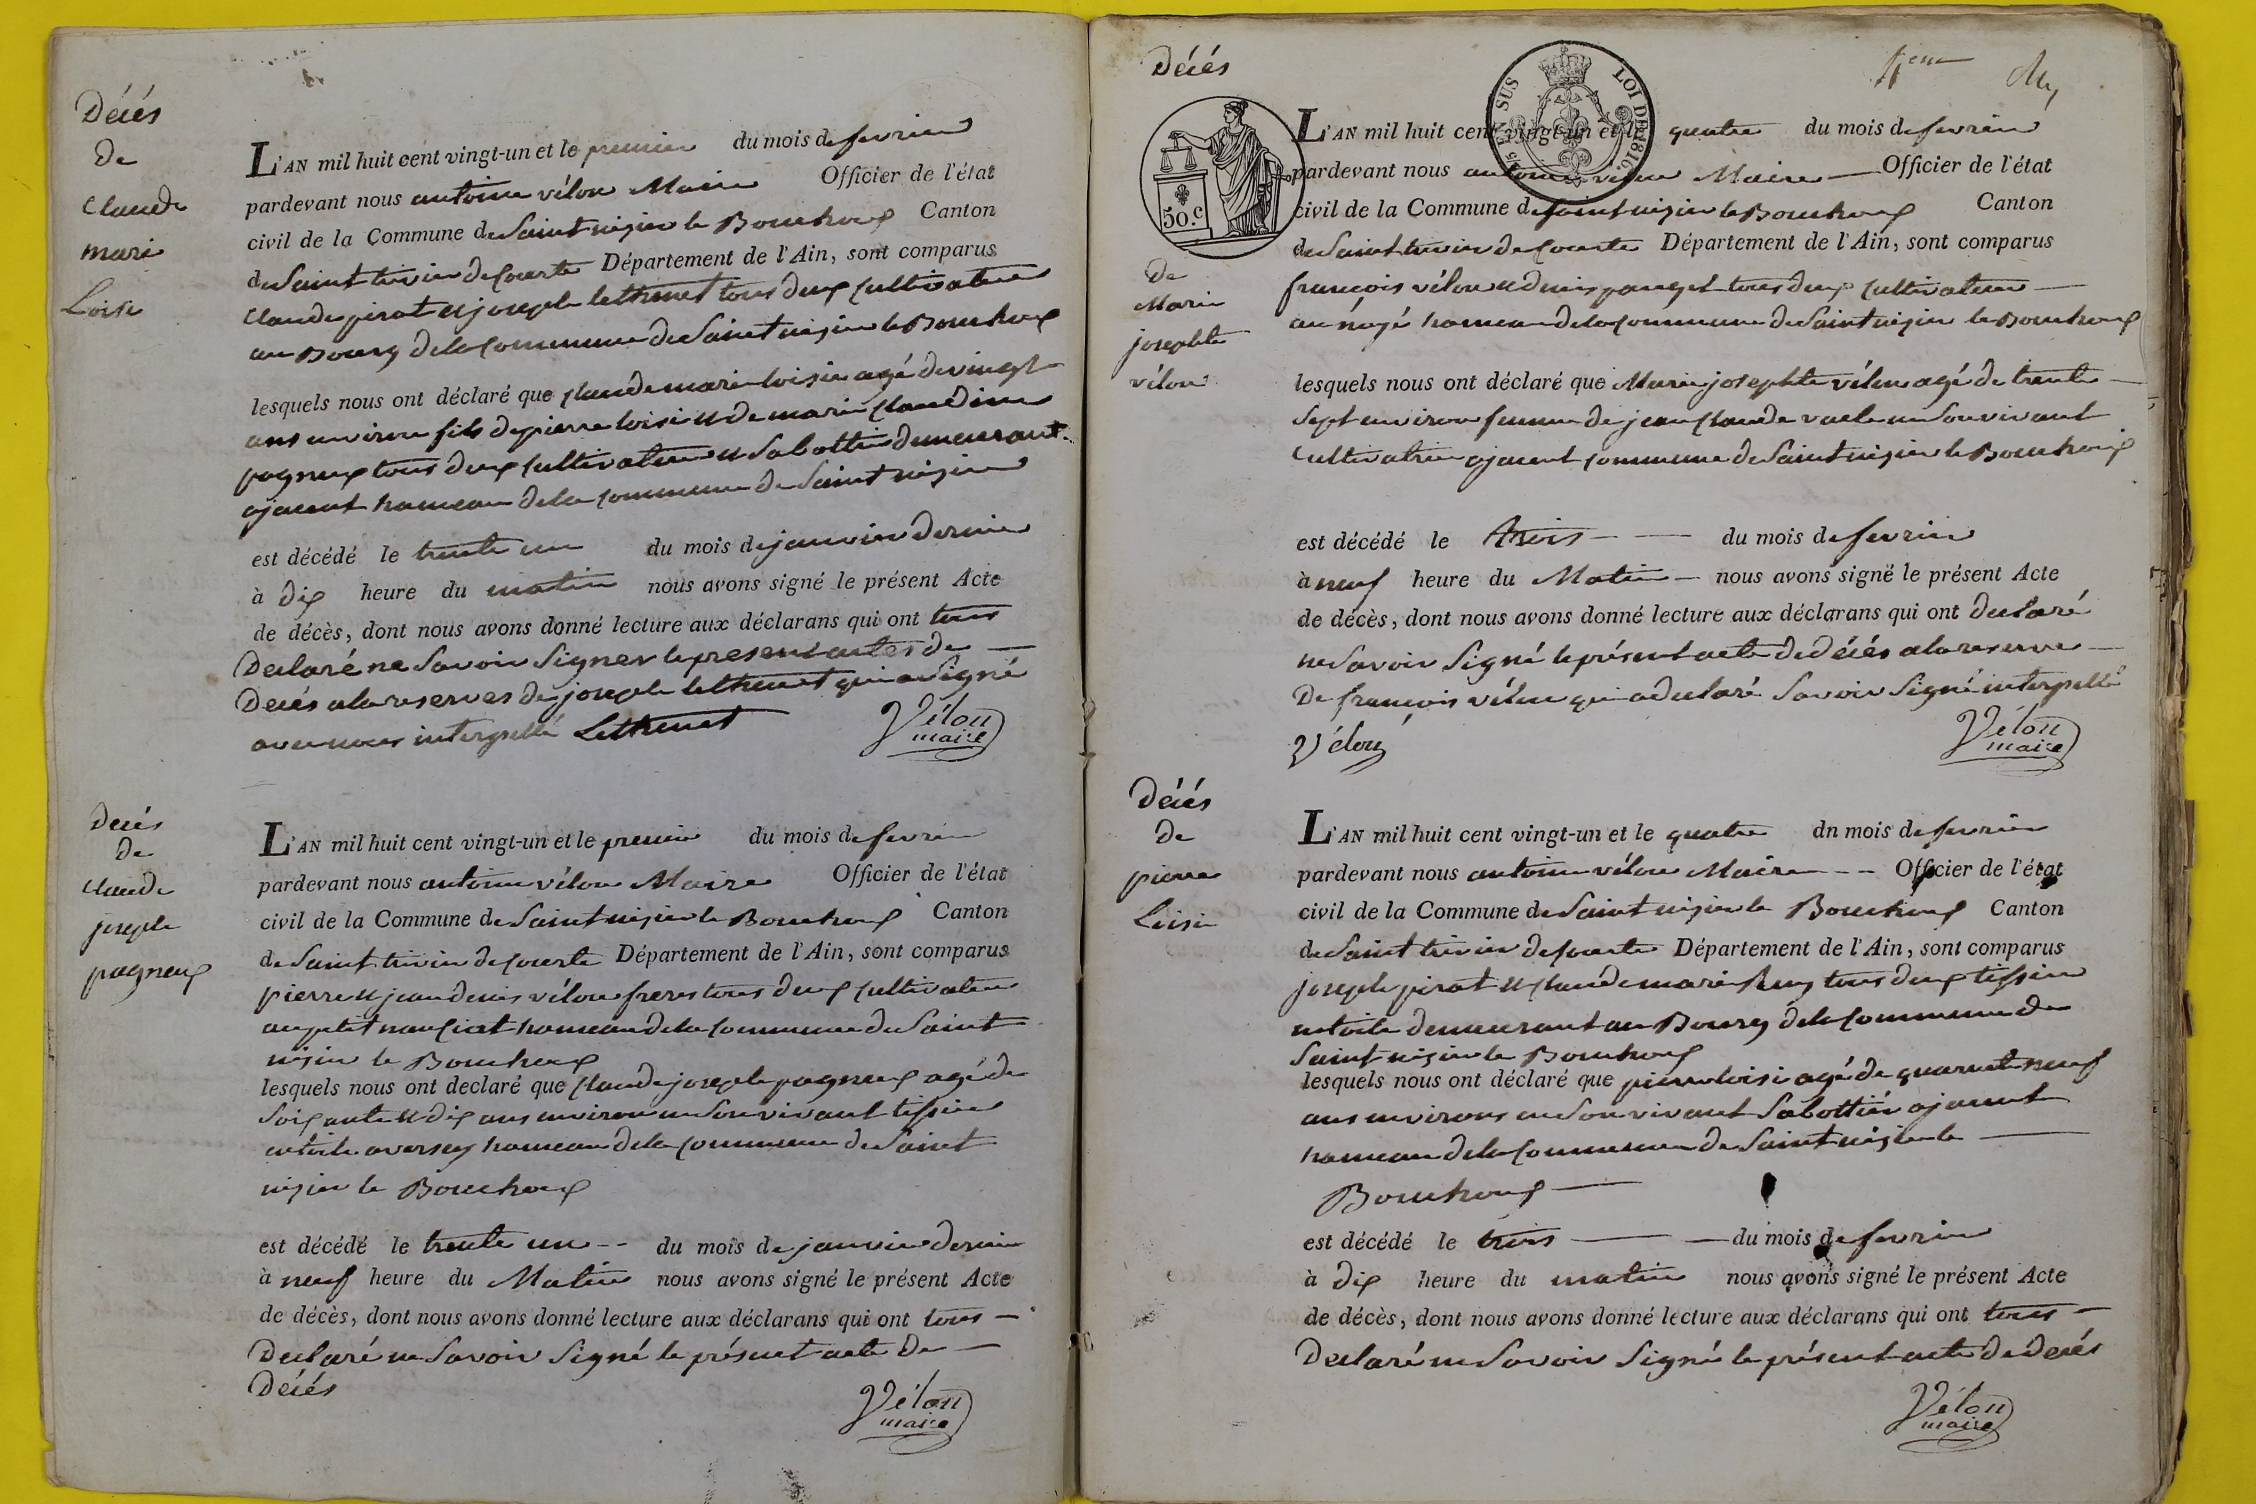 Décés
de
Claude
marie
Loisi
L'AN mil huit cent vingt-un et le premier du mois de fevrier
pardevant nous antoine vélon Maire Officier de l'état
civil de la Commune de Saint nizier le Bouchoux Canton
de Saint trivier de Courte Département de l'Ain, sont comparus
Claude pirat et joseph lethenet tous deux Cultivateur
au Bourg de la Commune de Saint nizier le Bouchoux
lesquels nous ont déclaré que Claude marie loisi agé de vingt
ans environ fils de pierre loisi et de marie Claudine
pagneux tous deux Cultivateur et Sabottié demeurant
ajacent hameau de la Commune de Saint nizier
est décédé le trente un du mois de janvier dernier
à dix heure du matin nous avons signé le présent Acte
de décès, dont nous avons donné lecture aux déclarans qui ont tous
Declaré ne Savoir Signer le present actes de
Decés a la reserves de joseph lethenet qui a Signé
avec nous interpellé Lethenet Vélon
maire
Decés
de
Claude
joseph
pagneux
L'AN mil huit cent vingt-un et le premier du mois de fevrier
pardevant nous antoine vélon Maire Officier de l'état
civil de la Commune de Saint nizier le Bouchoux Canton
de Saint trivier de Courte Département de l'Ain, sont comparus
pierre et jean denis vélon freres tous deux Cultivateur
au petit hameau de la Commune de Saint
nizier le Bouchoux
lesquels nous ont declaré que Claude joseph pagneux agé de
Soixante et dix ans environ en Son vivant tissier
en toile a versey hameau de la Commune de Saint
nizier le Bouchoux
est décédé le trente un du mois de janvier dernier
à neuf heure du Matin nous avons signé le présent Acte
de décès, dont nous avons donné lecture aux déclarans qui ont tous
Declaré ne Savoir Signé le présent acte De
Décés
Vélon
maire
Décés
4eme
EN SUS LOI DE 1816
50.c
de
Marie
josephte
vélon
L'AN mil huit cent vingt-un et le quatre du mois de fevrier
pardevant nous antoine vélon Maire Officier de l'état
civil de la Commune de Saint nizier le Bouchoux Canton
de Saint trivier de Courte Département de l'Ain, sont comparus
françois vélon et denis panget tous deux Cultivateur
au hameau de la Commune de Saint nizier le Bouchoux
lesquels nous ont déclaré que Marie josephte vélon agé de trente
Sept environ femme de jean Claude en Son vivant
Cultivatrice ajacent Commune de Saint nizier le Bouchoux
est décédé le trois du mois de fevrier
à neuf heure du Matin nous avons signé le présent Acte
de décès, dont nous avons donné lecture aux déclarans qui ont declaré
ne Savoir Signé le présent acte de décés a la reserve
De françois vélon qui a declaré Savoir Signé interpellé
Vélon Vélon
maire
Décés
de
pierre
Loisi
L'AN mil huit cent vingt-un et le quatre dn mois de fevrier
pardevant nous antoine vélon Maire Officier de l'état
civil de la Commune de Saint nizier le Bouchoux Canton
de Saint trivier de Courte Département de l'Ain, sont comparus
joseph pirat et Claude marie tous deux tissier
en toile demeurant au Bourg de la Commune de
Saint nizier le Bouchoux
lesquels nous ont déclaré que pierre loisi agé de quarante neuf
ans environs en Son vivant Sabottiér ajacent
hameau de la Commune de Saint nizier le
Bouchoux
est décédé le trois du mois de fevrier
à dix heure du matin nous avons signé le présent Acte
de décès, dont nous avons donné lecture aux déclarans qui ont tous
Declaré ne Savoir Signé le présent acte de Decés
Vélon
maire